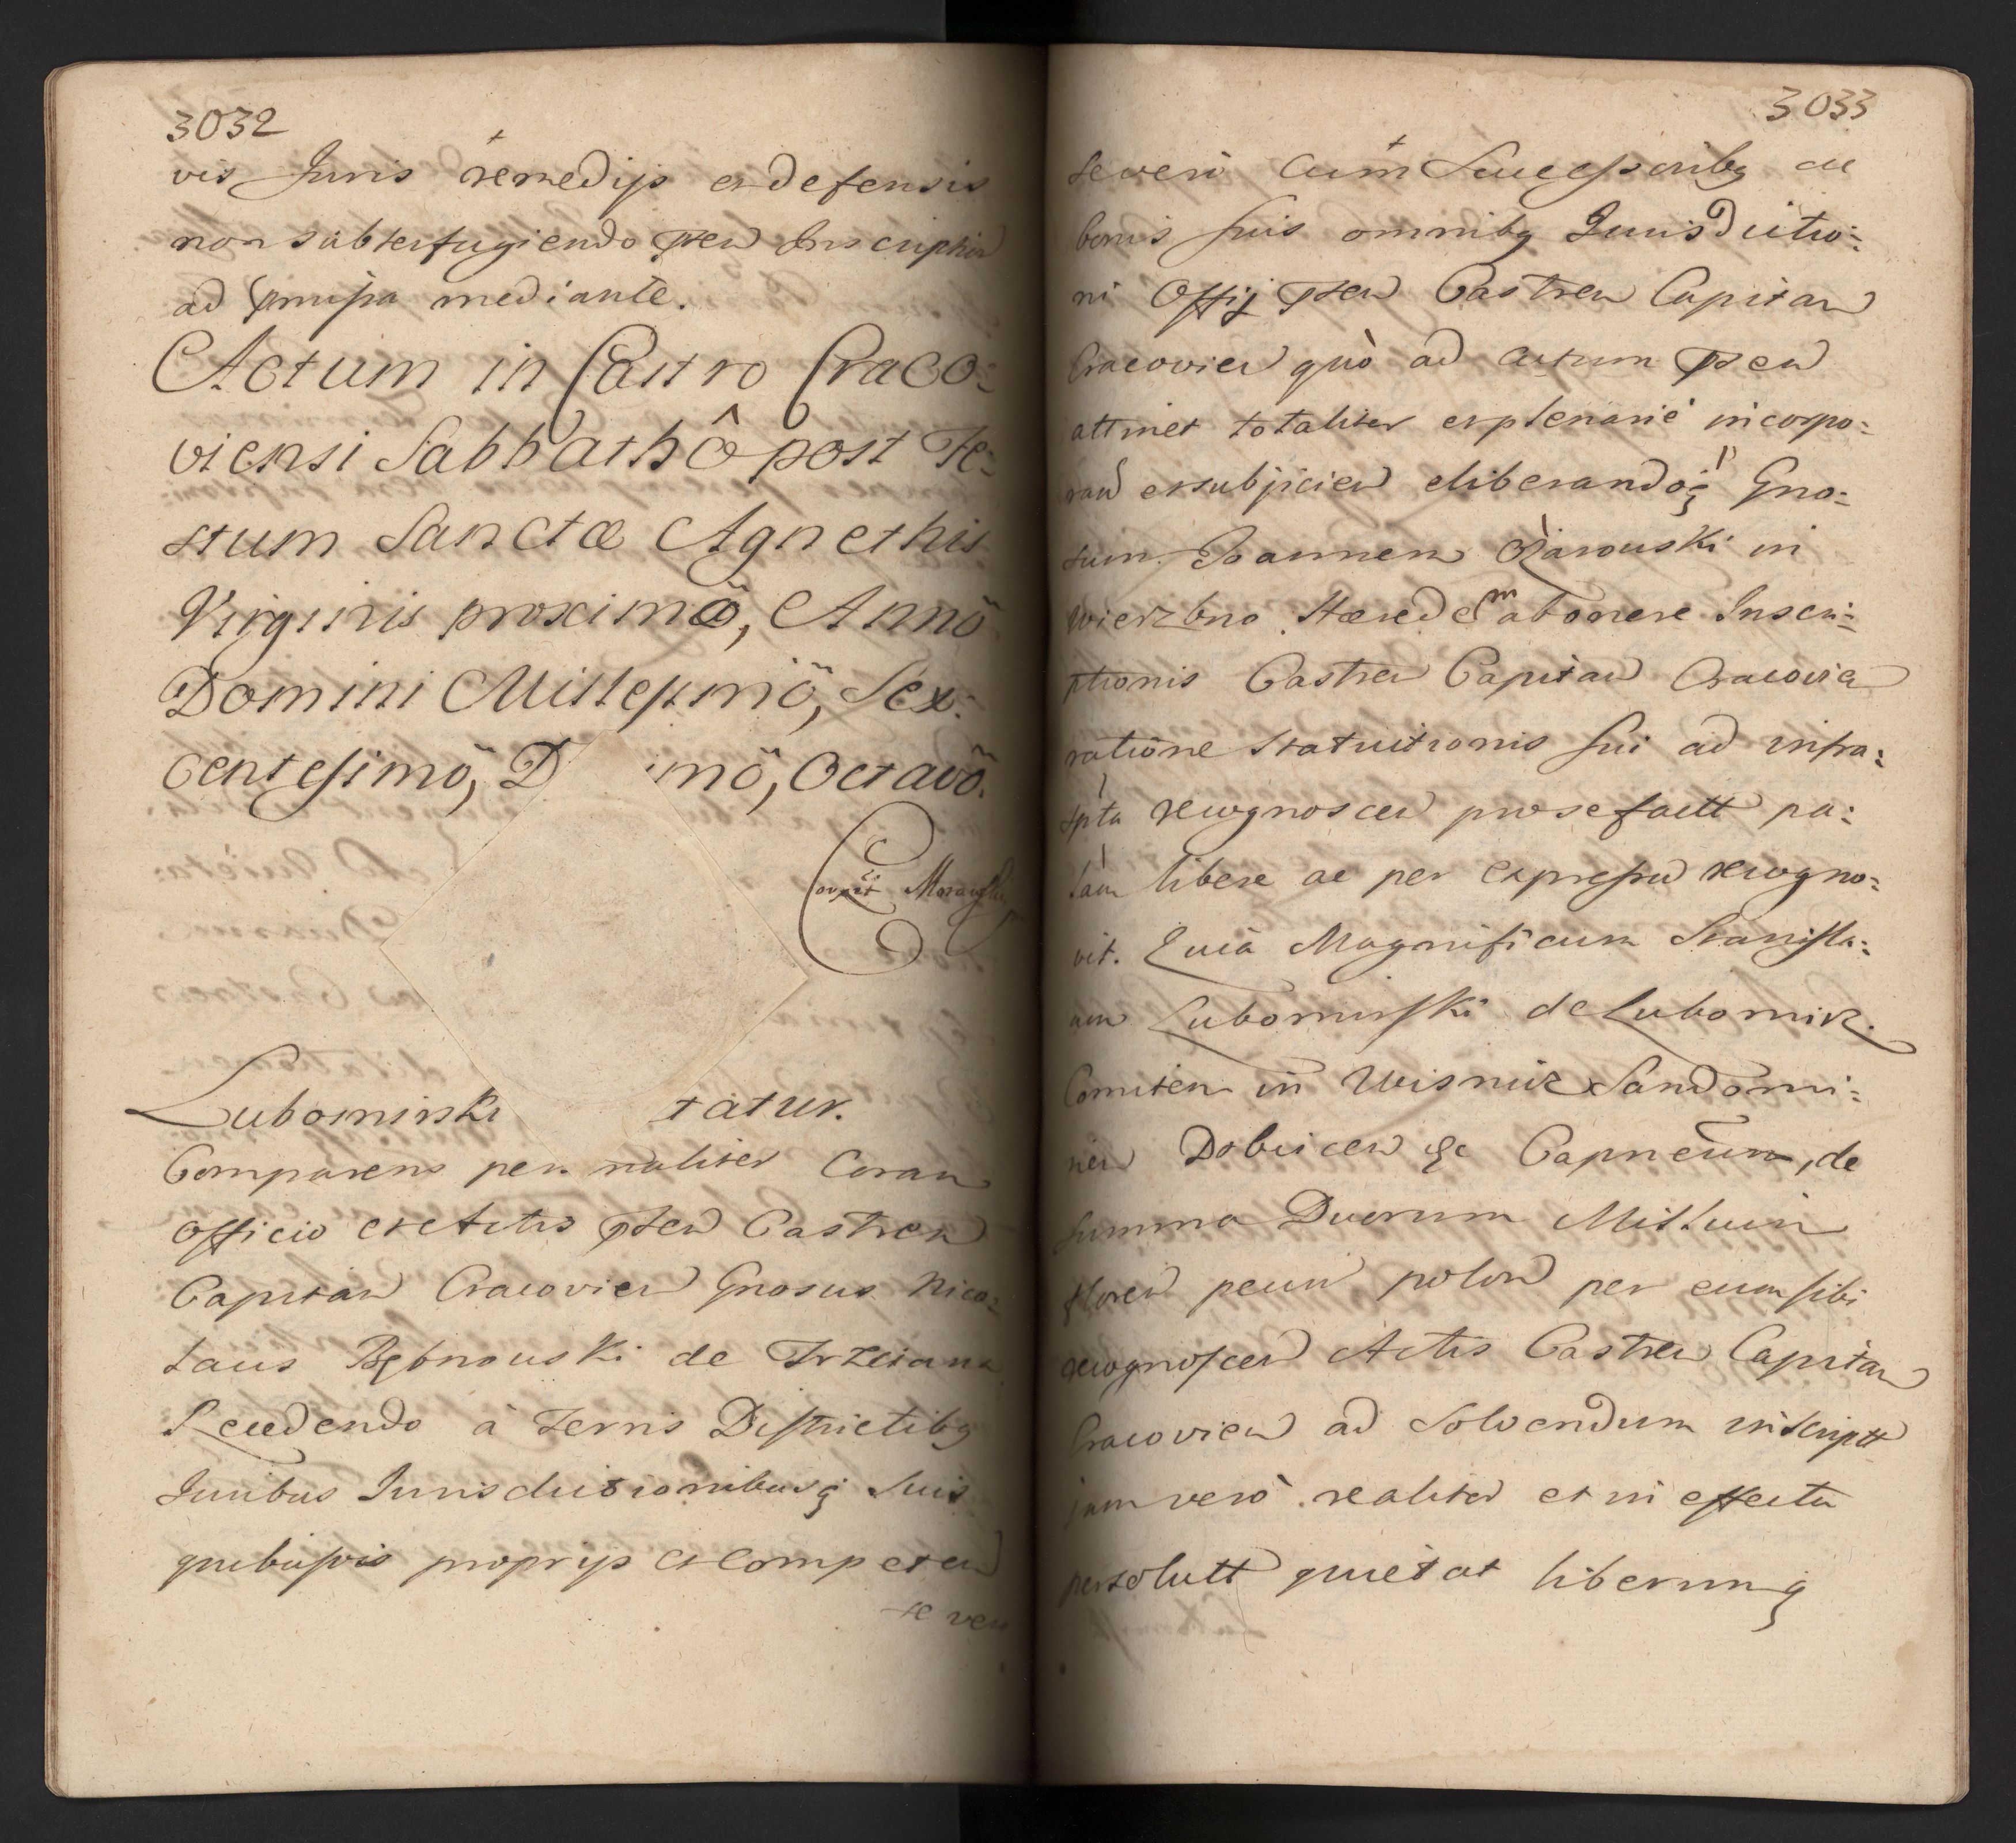 3032
vis Juris remedijs et defensis
non subterfugiendo pten Inscriptio
ad pmissa mediante.
Actum in Castro Craco:
viensi Sabbathô post Fe:
stum Sanctæ Agnethis
Virginis proximô, Annô
Domini Millesimô, Sex:
centesimô, D imô, Octavô.
Corrxt Morawski
Lubomirski tatur.
Comparens per naliter Coram
Officio et Actis pten Castren
Capitan Cracovien Gnosus Nico:
laus Rębnowski de Trzciana
Recedendo à Terris Districtibq
Juribus Jurisdictionibusq Suis
quibusvis proprijs et Competen
se vero
3033
se vero cum Successoribq ac
bonis suis omnibq Jurisdictio:
ni Offij pten Castren Capitan
Cracovien quò ad actum pten
attinet totaliter et plenariè incorpo:
ran et subjicien eliberandoq Gno:
sum Joannem Ożarowski in
Wierzbno Hæredem ab onere Inscri:
ptionis Castren Capitan Cracovien
ratione Statuitionis sui ad infra:
spta recognoscen pro se factt pa:
lam libere ac per expressum recogno:
vit. Quia Magnificum Stanisla:
um Lubomirski de Lubomirz
Comitem in Wisnicz Sandomi:
rien Dobcicen &c Capneum, de
Summa Duorum Millium
floren pecun polon per eum sibi
recognoscen Actis Castren Capitan
Cracovien ad Solvendum inscriptt
jam verò realiter et in effectu
persolutt quietat liberumq